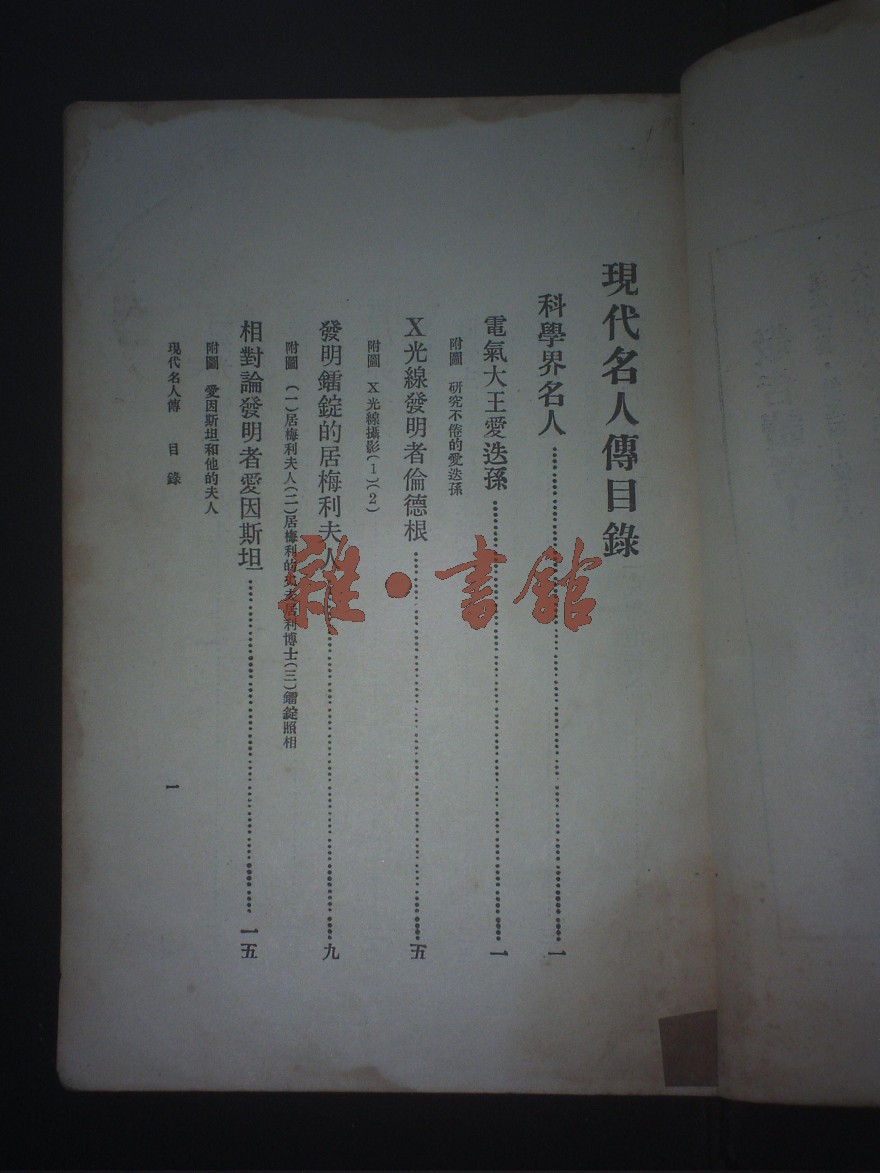 現代名人傳目錄
科學界名人……一
電氣大王愛迭孫……一
附圖 研究不倦的愛迭孫
X光線發明者倫德根……五
附圖 X光線攝影(1)(2)
發明鐳錠的居梅利夫人……九
附圖 (一)居梅利夫人(二)居梅利的丈夫居利博士(三)鐳錠照相
相對論發明者愛因斯坦……一五
附圖 愛因斯坦和他的夫人
現代名人傳 目錄
一
雜·書館